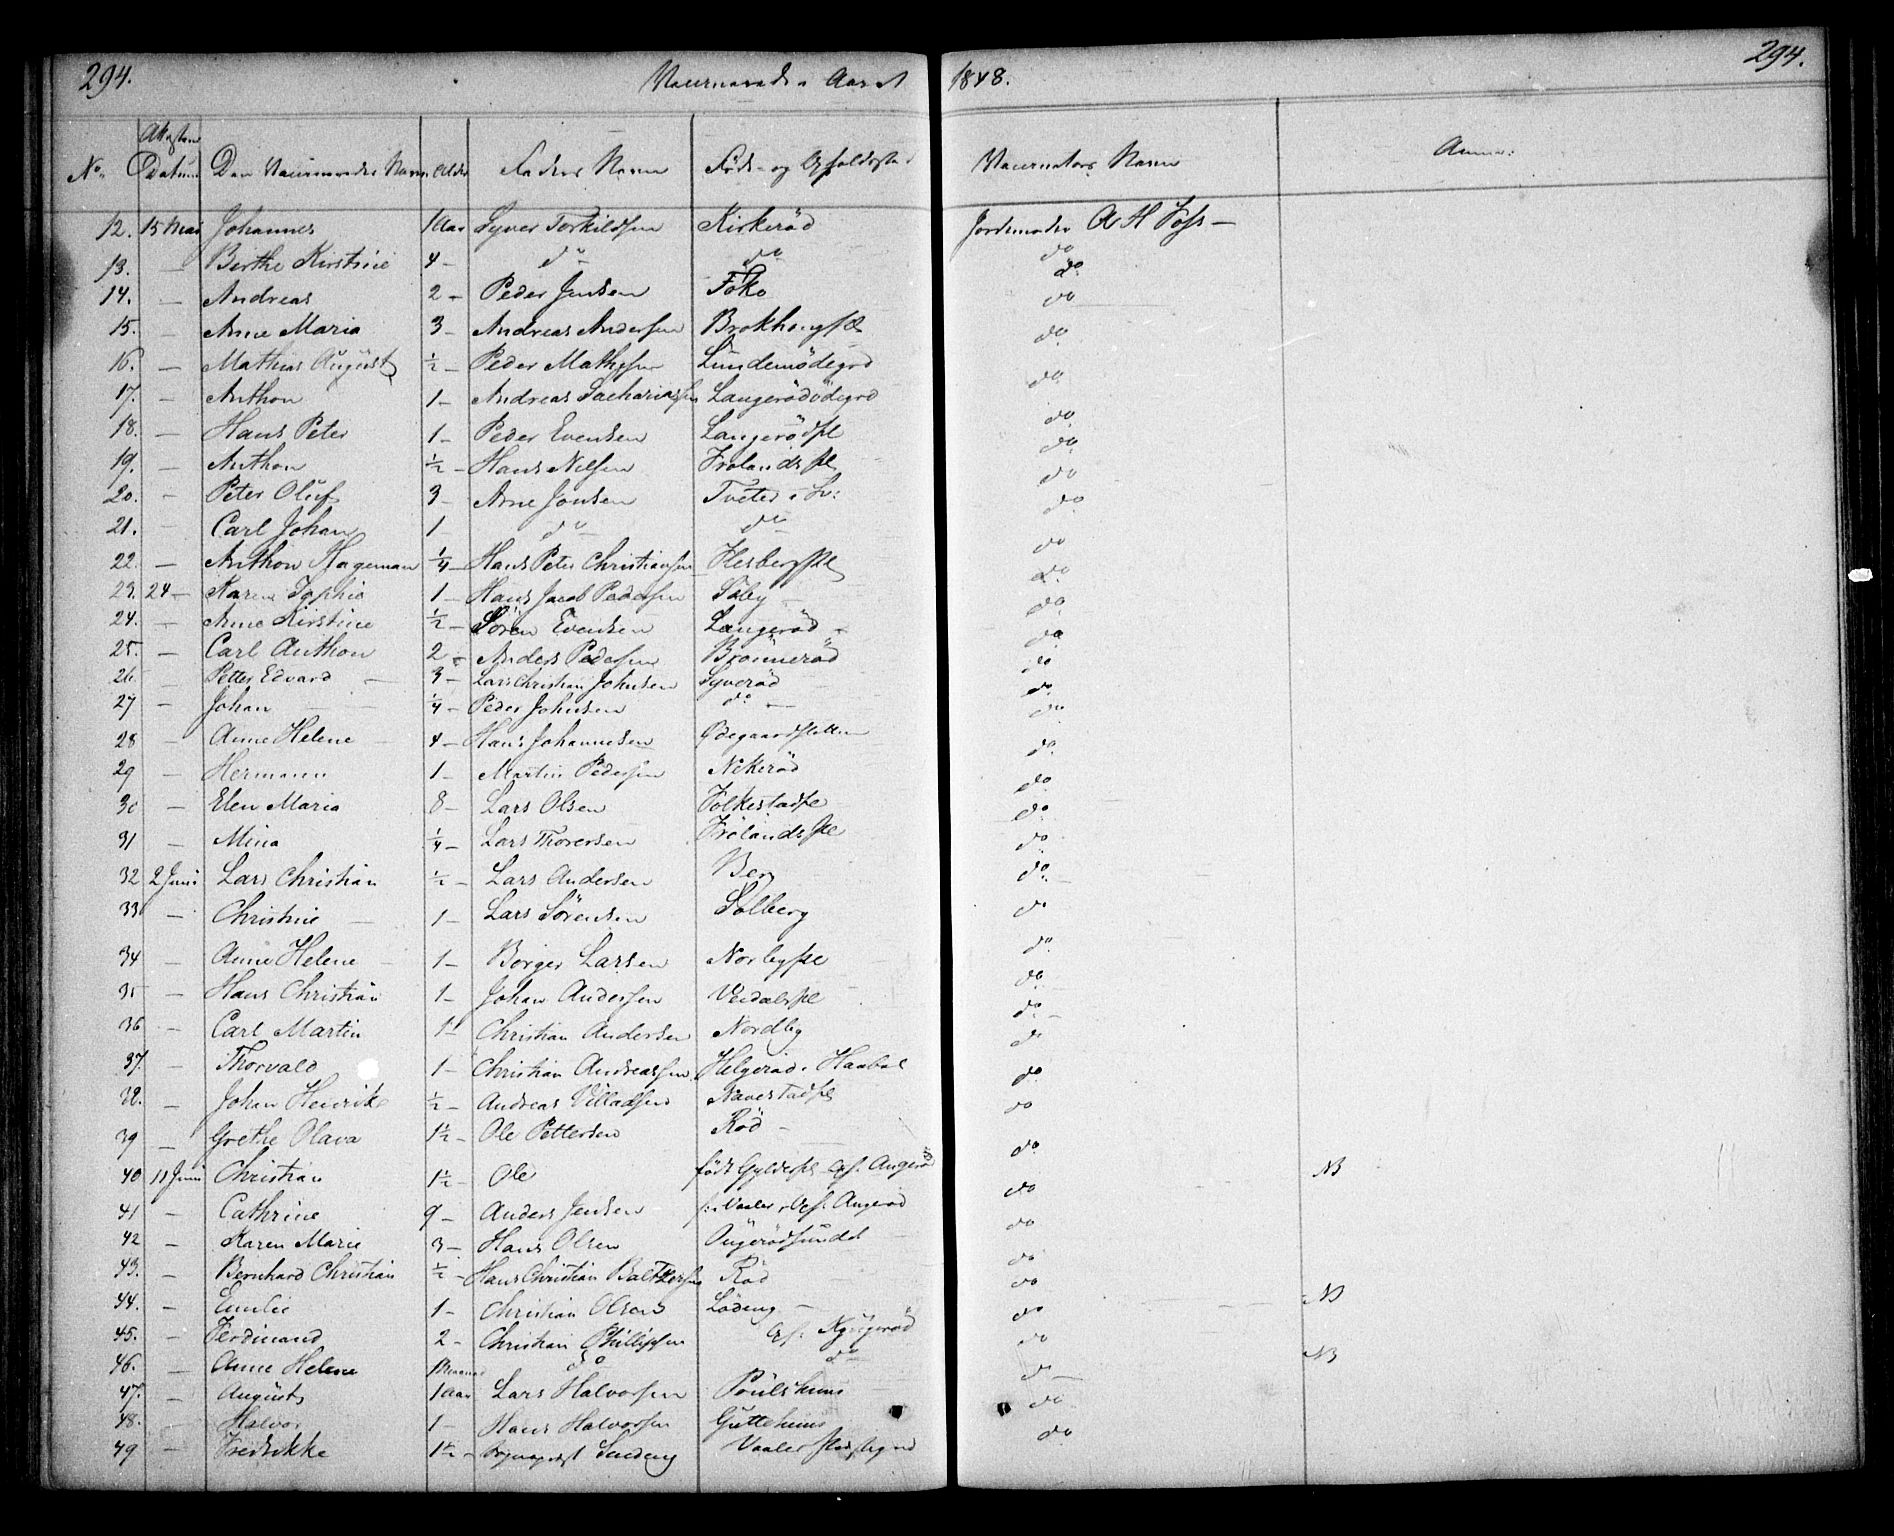 294. Vaccinerede i Aaret 1848. 294.
No. Attestens Datum Den Vaccineredes Navn Alder Faderens Navn Føde- og Opholdssted Vaccinators Navn Anm:
12. 15 Mai Johannes 1 Aar Syver Torkildsen Kirkeröd Jordemoder A H Foss —
13. — Birthe Kirstine 4 — do do do
14. — Andreas 2 — Peder Jensen Föko do
15. — Anne Maria 3 — Andreas Andersen do
16. — Mathias August ½ — Peder Mathisen Lundemödegrd do
17. — Anthon 1 — Andreas Sachariasen Langerödödegrd do
18. — Hans Peter 1 — Peder Evensen Langerödpl do
19. — Anthon ½ — Hans Nilsen Frolandspl do
20. — Peter Oluf 3 — Arne Jonsen Tveter i do
21. — Carl Johan 1 — do do do
22. — Anthon Hageman ¼ — Hans Peter Christiansen do
23. 24 — Karen Sophie 1 — Hans Jacob Pedersen Säby do
24. — Anne Kirstine ½ — Sören Evensen Langeröd do
25. — Carl Anthon 2 — Anders Pedersen Brönneröd do
26. — Petter Edvard — 3 — Lars Christian Johnsen Syveröd do
27 — Johan ¼ — Peder Johnsen do do
28 — Anne Helene 4 — Hans Johannesen Ödegaardsletten do
29 — Hermann 1 — Martin Pedersen Nekeröd do
30 — Elen Maria 8 — Lars Olsen Folkestadpl do
31 — Mina ¼ — Lars Thoresen Frölandspl do
32 2 Juni Lars Christian ½ — Lars Andersen Berg do
33 — Christine 1 — Lars Sörensen Solberg do
34 — Anne Helene 1 — Börger Larsen Norbypl do
35 — Hans Christian 1 — Johan Andersen Veidalspl do
36 — Carl Martin 1 — Christian Andersen Nordby do
37. — Thorvald 1 — Christian Andreassen Helgeröd i Haaböl do
38. — Johan Henrik ½ — Andreas Villadsen Navestadpl do
39 — Grethe Olava 1½ — Ole Pettersen Röd — do
40 11 Juni Christian 1½ — Ole födt Gyldepl Opf. Angeröd do NB
41 — Cathrine 9 — Anders Jensen f. i Vaaler, Opf. Angeröd do
42 — Karen Marie 3 — Hans Olsen Angerödsundet do
43. — Bernhard Christian ½ — Hans Christian Baltzersen Röd do
44. — Emilie 1 — Christian Olsen Löding — do NB
45. — Ferdinand 2 — Christian Phillipsen Opf. do
46. — Anne Helene 1 Maaned do do do NB
47. — August 1 Aar Lars Halvorsen Poulshuus do
48. — Halvor 1 — Hans Halvorsen Guttehuus do
49 — Fredrikke 1½ — Sognepræst Vaaler Præstegrd